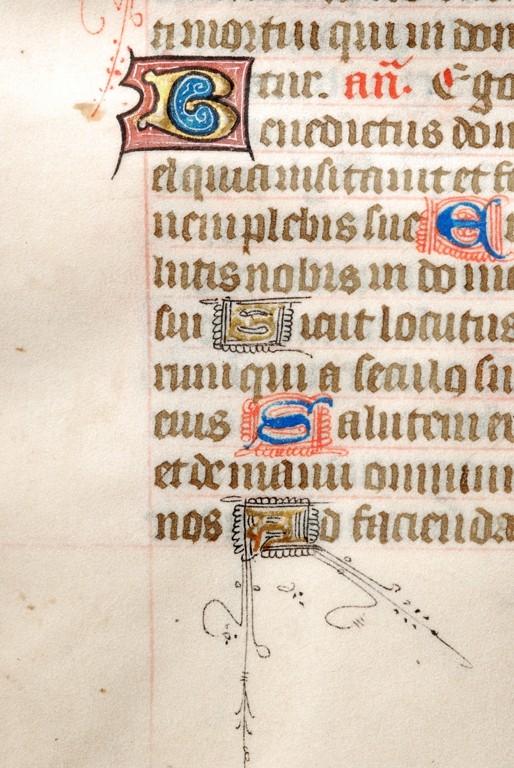 ti mortui qui in dom
tur. añ. Ego
Benedictus dom
el quia uisitauit et fe
nem plebis sue E
lutis nobis in domu
sui Sicut locutus
rum qui a seculo su
eius Salutem ex
et de manu omnium
nos Ad facienda